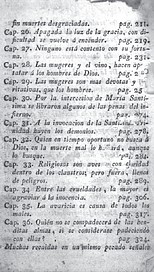 fin muertes desgraciadas. pag. 211.
Cap. 26. Apagada la luz de la gracia, con dificultad se vuelve á encender. pag. 219.
Cap. 27. Ninguno está contento con su fortuna. pag.
Cap. 28. Las mugeres y el vino, hacen apostatar á los hombres de Dios. pag. 2
Cap. 29. Las mugeres son mas devotas y caritativas, que los hombres. pag. 25
Cap. 30. Por la intercesion de Maria Santisima se libraron algunos de las penas del infierno. pag.
Cap. 31. A la invocacion de la Santísima huyen los demonios. pag. 278.
Cap. 32. Quien en tiempo oportuno no busca á Dios, en la muerte mal lo hallará, aunque lo busque. pag.
Cap. 33. Religiosas son aves con quietud dentro de los claustros; pero fuera, llenos de peligros. pag.
Cap. 34. Entre las crueldades, la mayor es agraviar á la inocencia. pag. 306.
Cap. 35. La avaricia es causa de todos los males. pag.
Cap. 36. Quién no se compadecerá de las benditas almas, si se considerase padeciendo con ellas? pag. 324.
Muchas recaidas en un mismo pecado